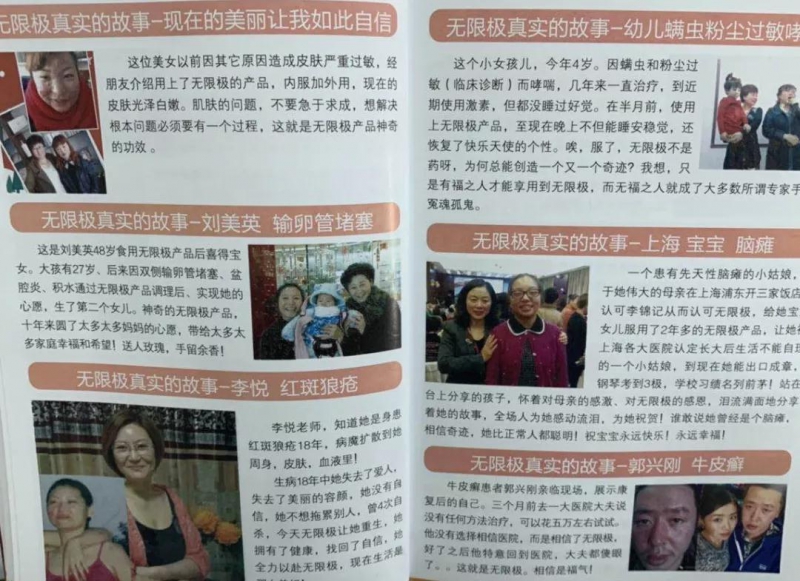 无限极真实的故事-现在的美丽让我如此自信
这位美女以前因其它原因造成皮肤严重过敏，经
朋友介绍用上了无限极的产品，内服加外用，现在的
皮肤光泽白嫩。肌肤的问题，不要急于求成，想解决
根本问题必须要有一个过程，这就是无限极产品神奇
的功效。
无限极真实的故事-刘美英 输卵管堵塞
这是刘美英48岁食用无限极产品后喜得宝
女。大孩有27岁、后来因双侧输卵管堵塞、盆
腔炎、积水通过无限极产品调理后、实现她的
心愿，生了第二个女儿。神奇的无限极产品，
十年来圆了太多太多妈妈的心愿，带给太多太
多家庭幸福和希望！送人玫瑰，手留余香！
无限极真实的故事-李悦 红斑狼疮
李悦老师，知道她是身患
红斑狼疮18年，病魔扩散到她
周身，皮肤，血液里！
生病18年中她失去了爱人，
失去了美丽的容颜，她没有自
信，她不想拖累别人，曾4次自
杀，今天无限极让她重生，她
拥有了健康，找回了自信，她
全力以赴无限极，现在生活是
无限极真实的故事-幼儿螨虫粉尘过敏哮
这个小女孩儿，今年4岁。因螨虫和粉尘过
敏（临床诊断）而哮喘，几年来一直治疗，到近
期使用激素，但都没睡过好觉。在半月前，使用
上无限极产品，至现在晚上不但能睡安稳觉，还
恢复了快乐天使的个性。唉，服了，无限极不是
药呀，为何总能创造一个又一个奇迹？我想，只
是有福之人才能享用到无限极，而无福之人就成了大多数所谓专家手
冤魂孤鬼。
无限极真实的故事-上海 宝宝 脑瘫
一个患有先天性脑瘫的小姑娘，
于她伟大的母亲在上海浦东开三家饭店
认可李锦记从而认可无限极，给她宝
女儿服用了2年多的无限极产品，让她
上海各大医院认定长大后生活不能自理
的一个小姑娘，到现在她能出口成章，
钢琴考到3极，学校习绩名列前茅！站在
台上分享的孩子，怀着对母亲的感激、对无限极的感恩，泪流满面地分享
着她的故事，全场人为她感动流泪，为她祝贺！谁敢说她曾经是个脑瘫，
相信奇迹，她比正常人都聪明！祝宝宝永远快乐！永远幸福！
无限极真实的故事-郭兴刚 牛皮癣
牛皮癣患者郭兴刚亲临现场，展示康
复后的自己。三个月前去一大医院大夫说
没有任何方法治疗，可以花五万左右试试。
他没有选择相信医院，而是相信了无限极，
好了之后他特意回到医院，大夫都傻眼
了。。这就是无限极。相信是福气！